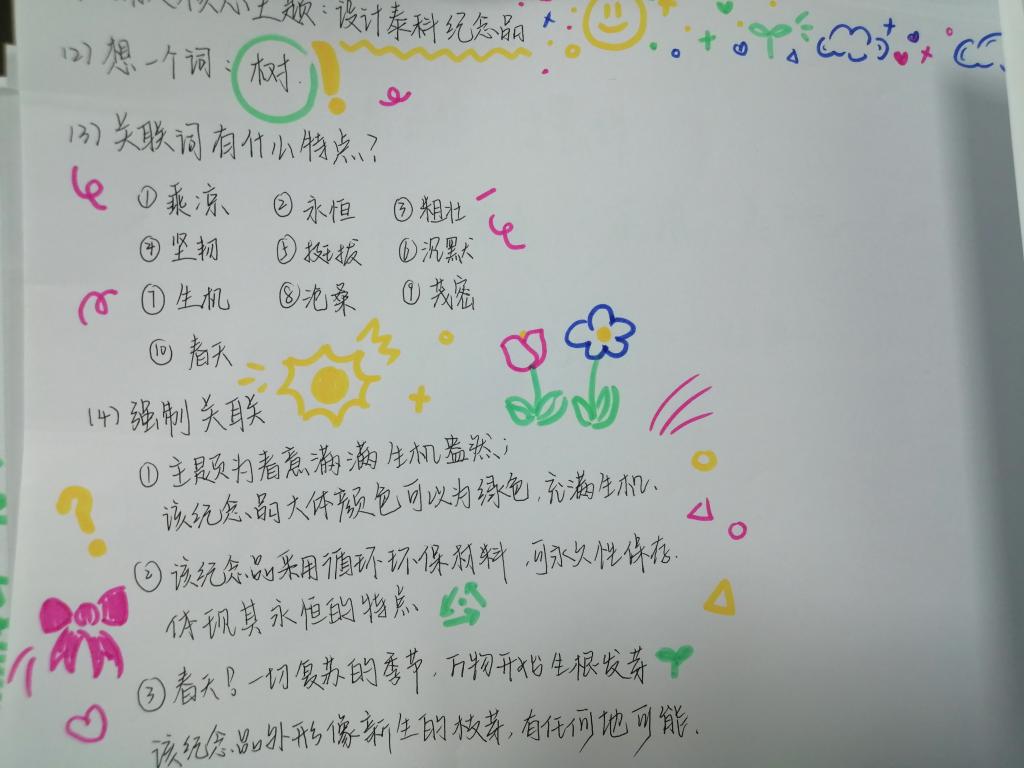 主题：设计泰科纪念品
(2) 想一个词： 树.
(3) 关联词有什么特点？
① 乘凉 ② 永恒 ③ 粗壮
④ 坚韧 ⑤ 挺拔 ⑥ 沉默
⑦ 生机 ⑧ 沧桑 ⑨ 茂密
⑩ 春天
(4) 强制关联
① 主题为春意满满生机盎然；
该纪念品大体颜色可以为绿色，充满生机.
② 该纪念品采用循环环保材料，可永久性保存.
体现其永恒的特点
③ 春天？一切复苏的季节，万物开始生根发芽
该纪念品外形像新生的枝芽，有任何地可能.